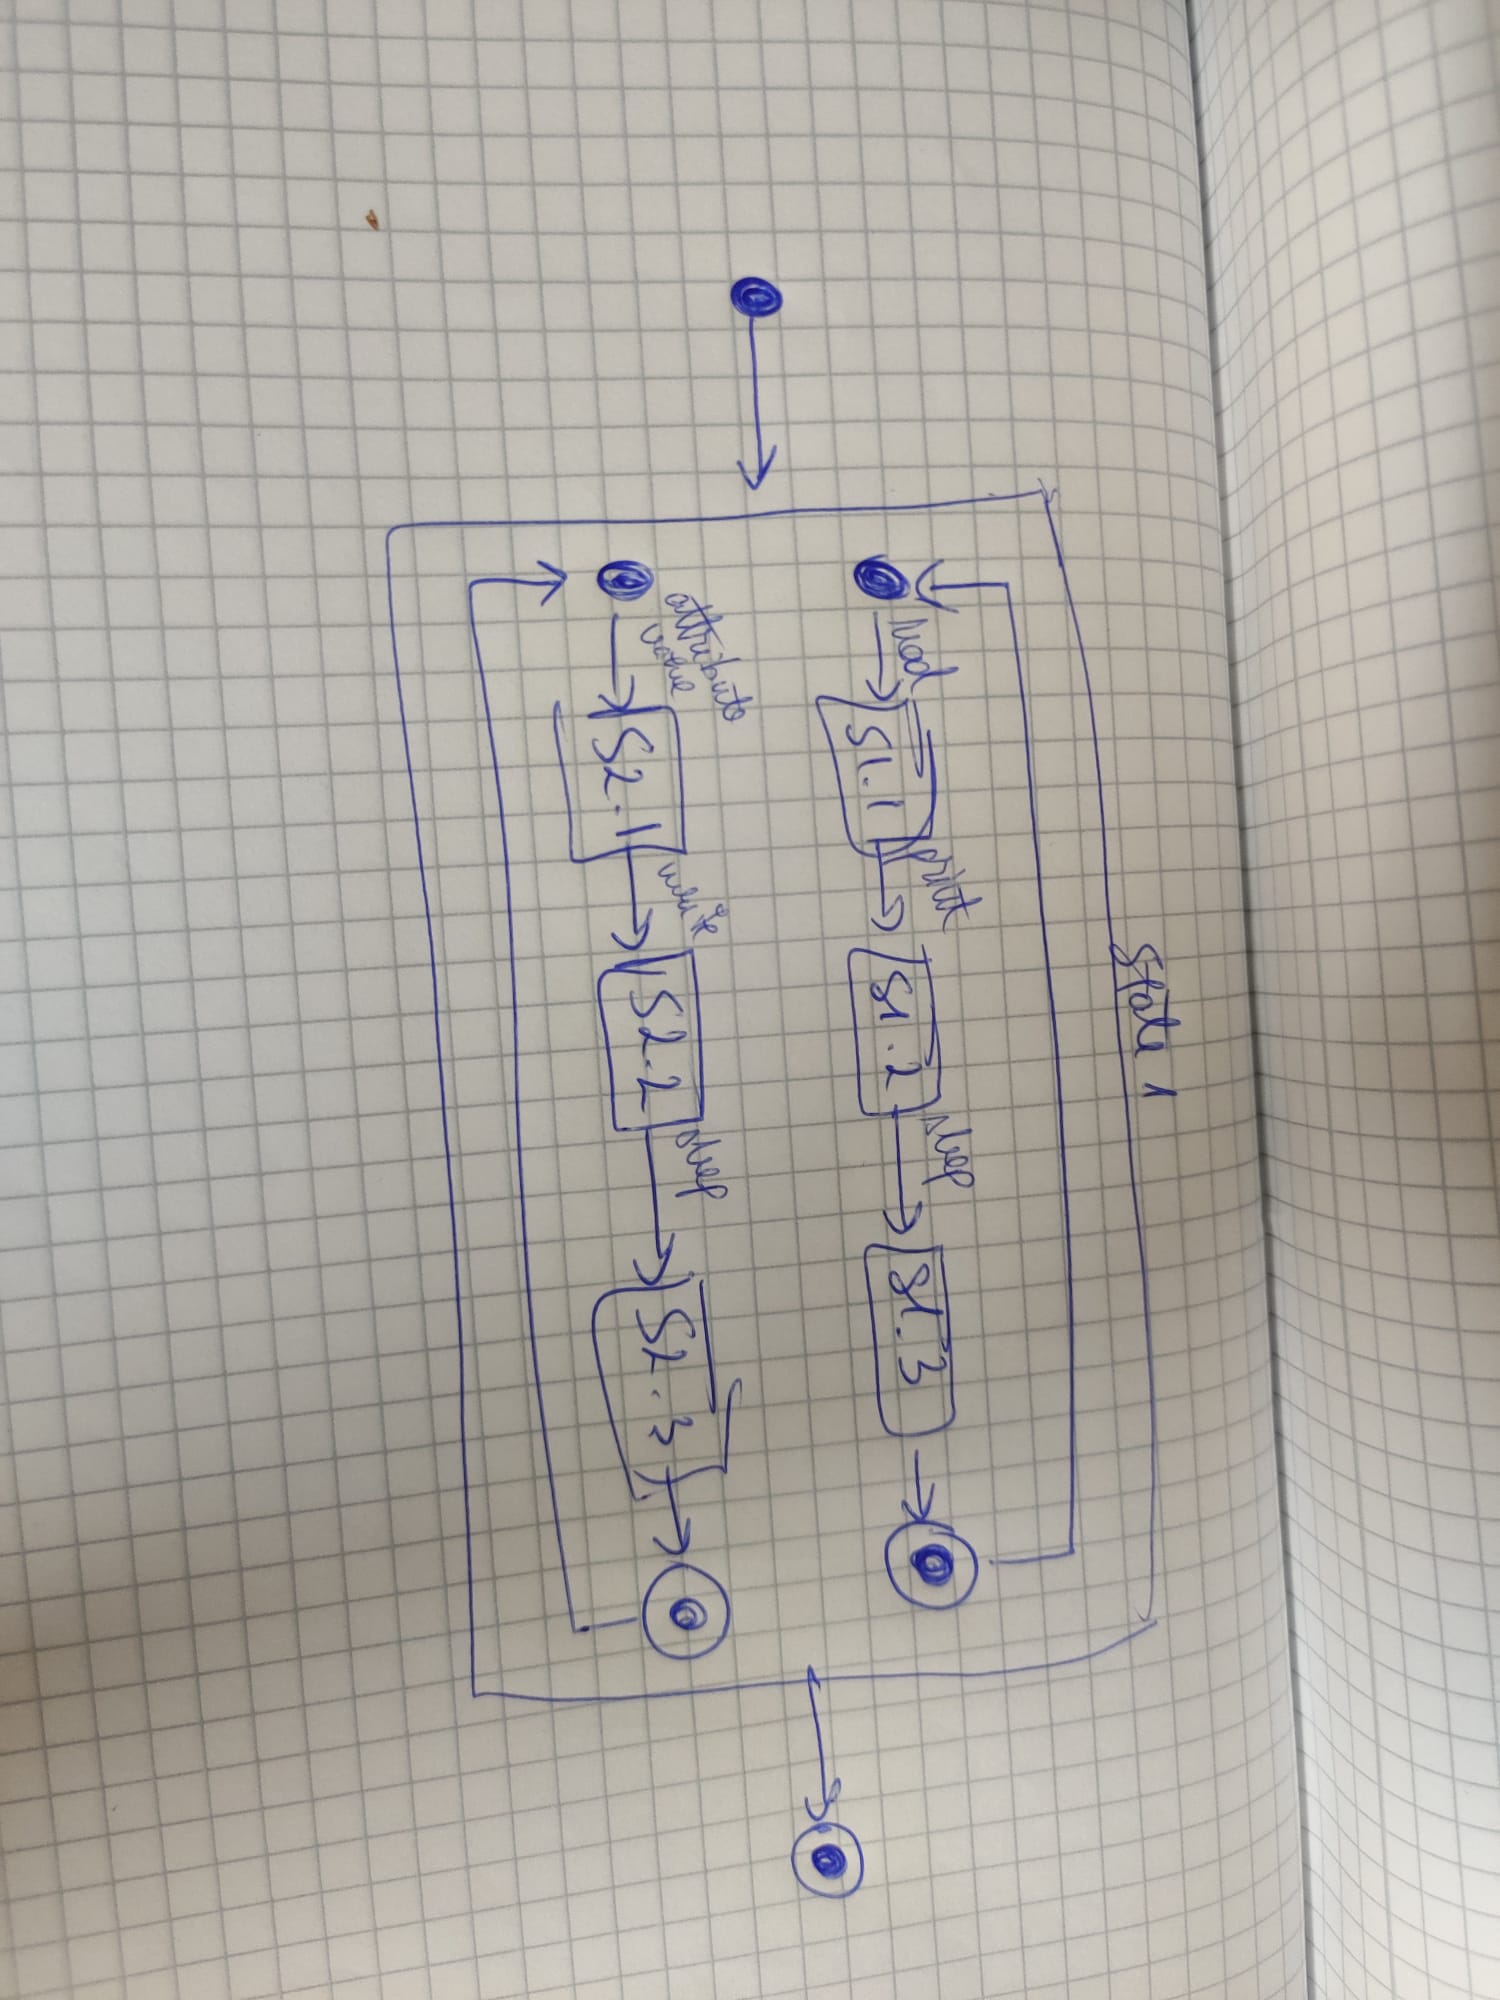 State 1
read
S1.1
print
S1.2
sleep
S1.3
attribute
value
S2.1
write
S2.2
sleep
S2.3